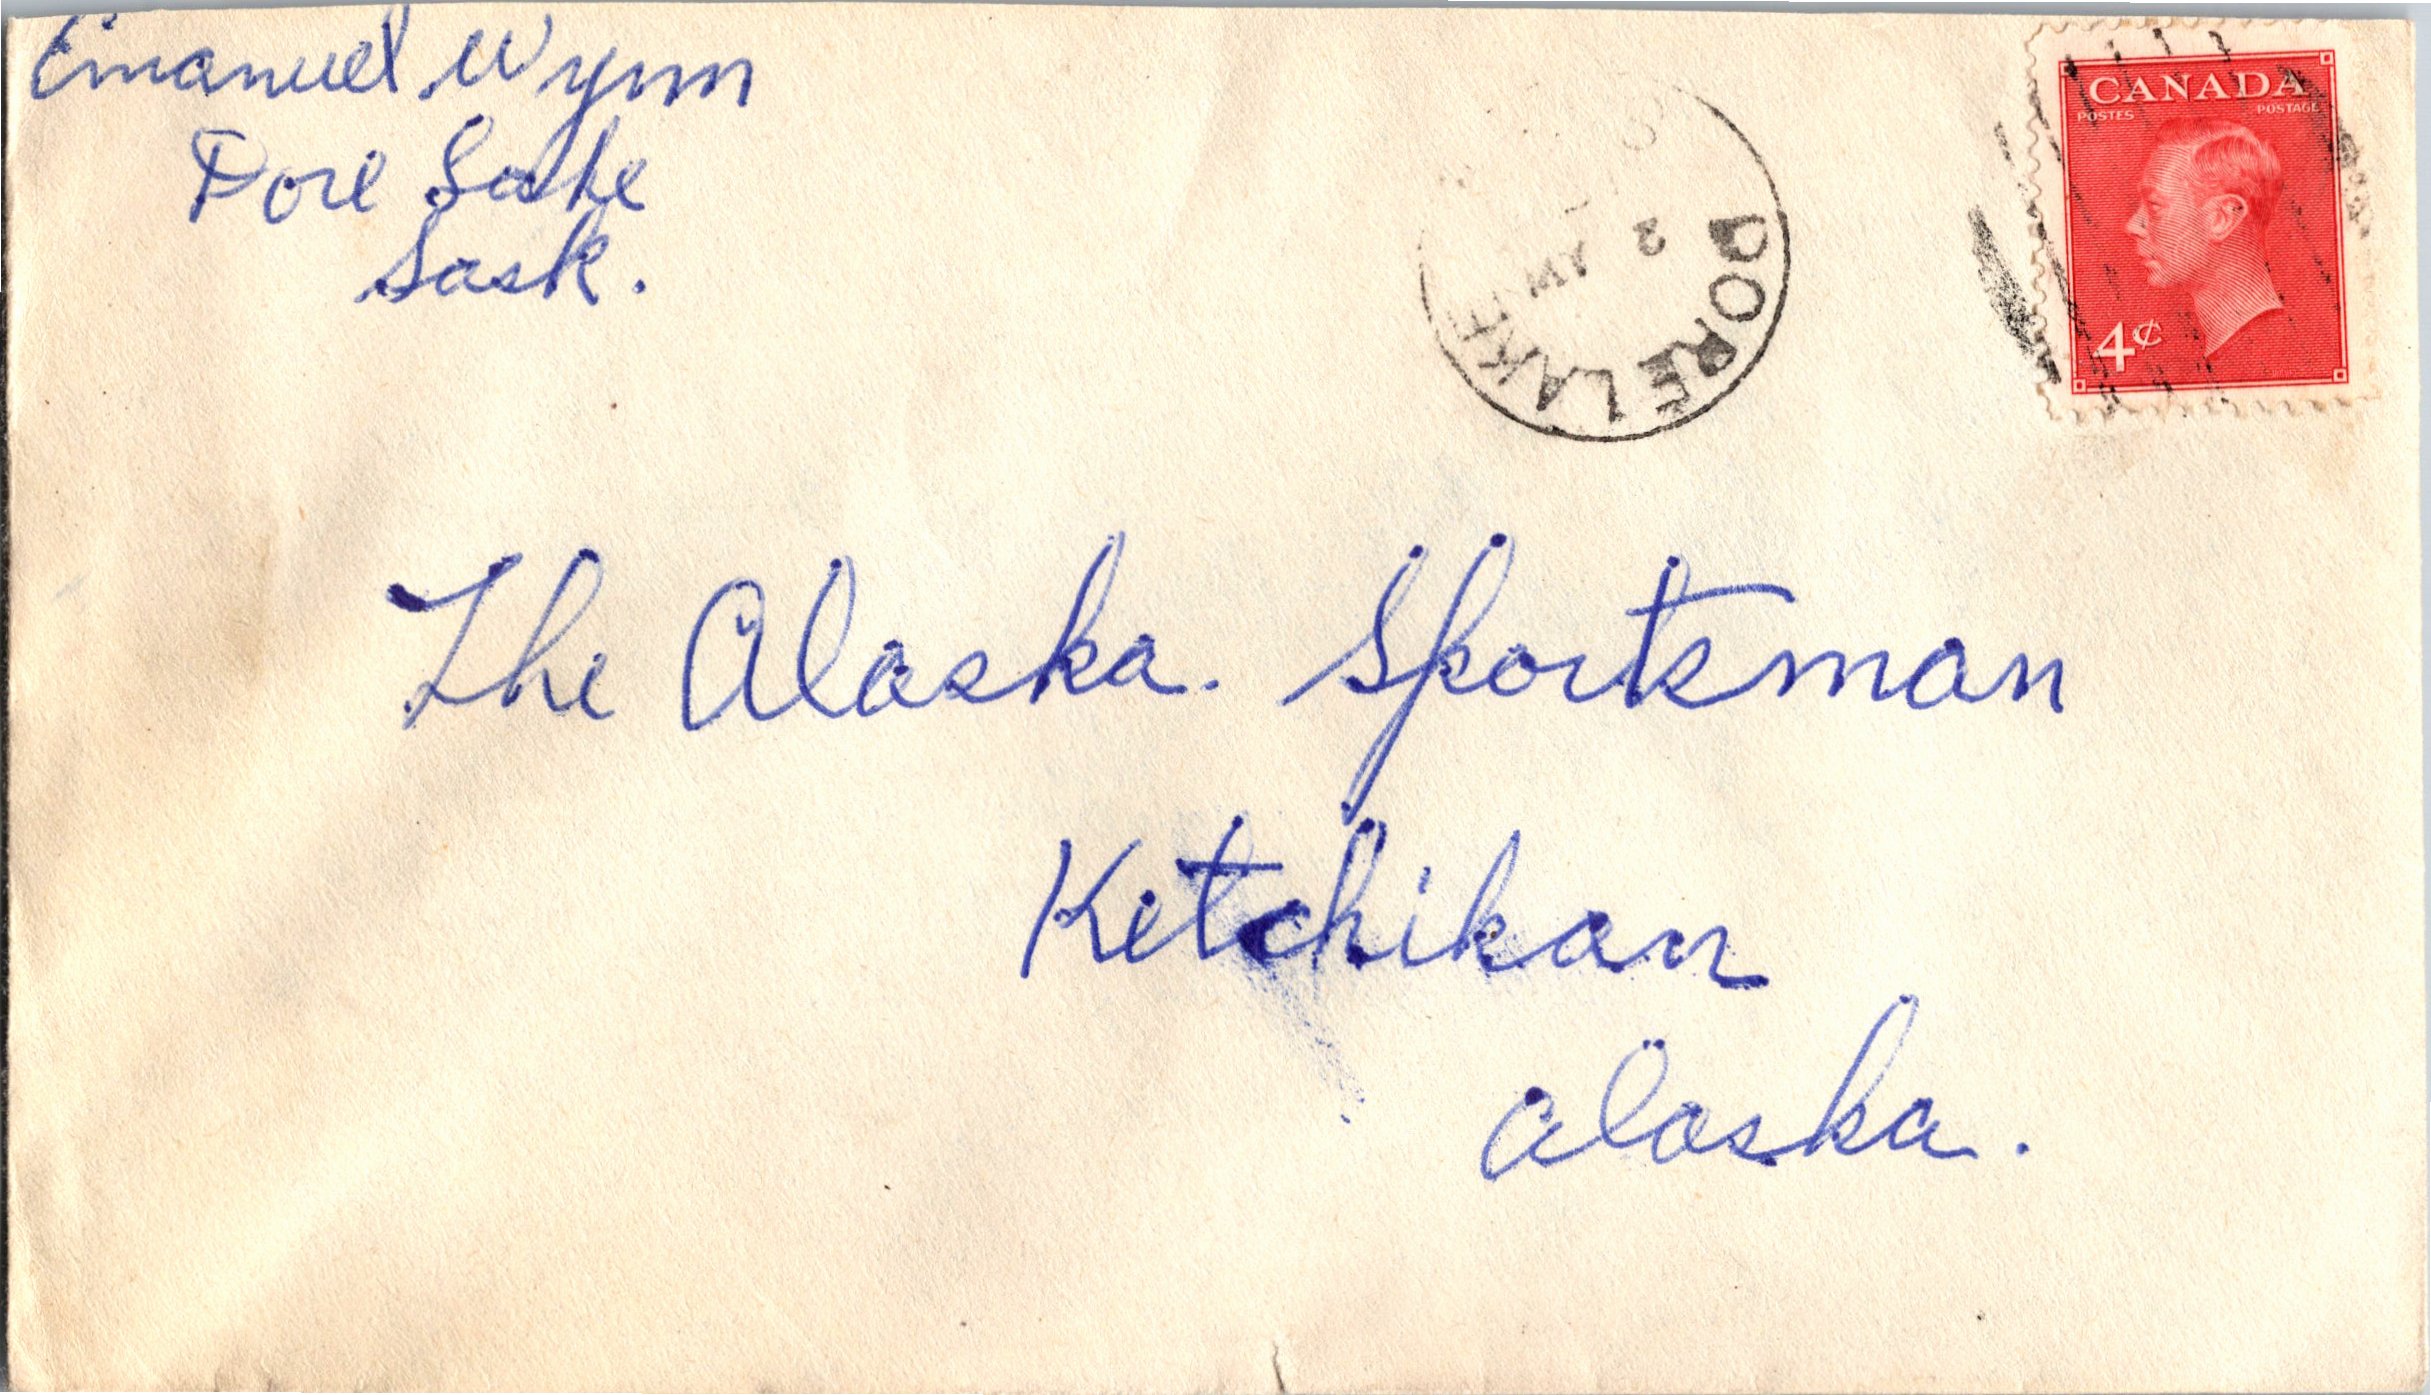 Emanuel Wynn
Dore Lake
Sask.
DORE LAKE
2
CANADA
POSTES POSTAGE
4¢
The Alaska. Sportsman
Ketchikan
Alaska.